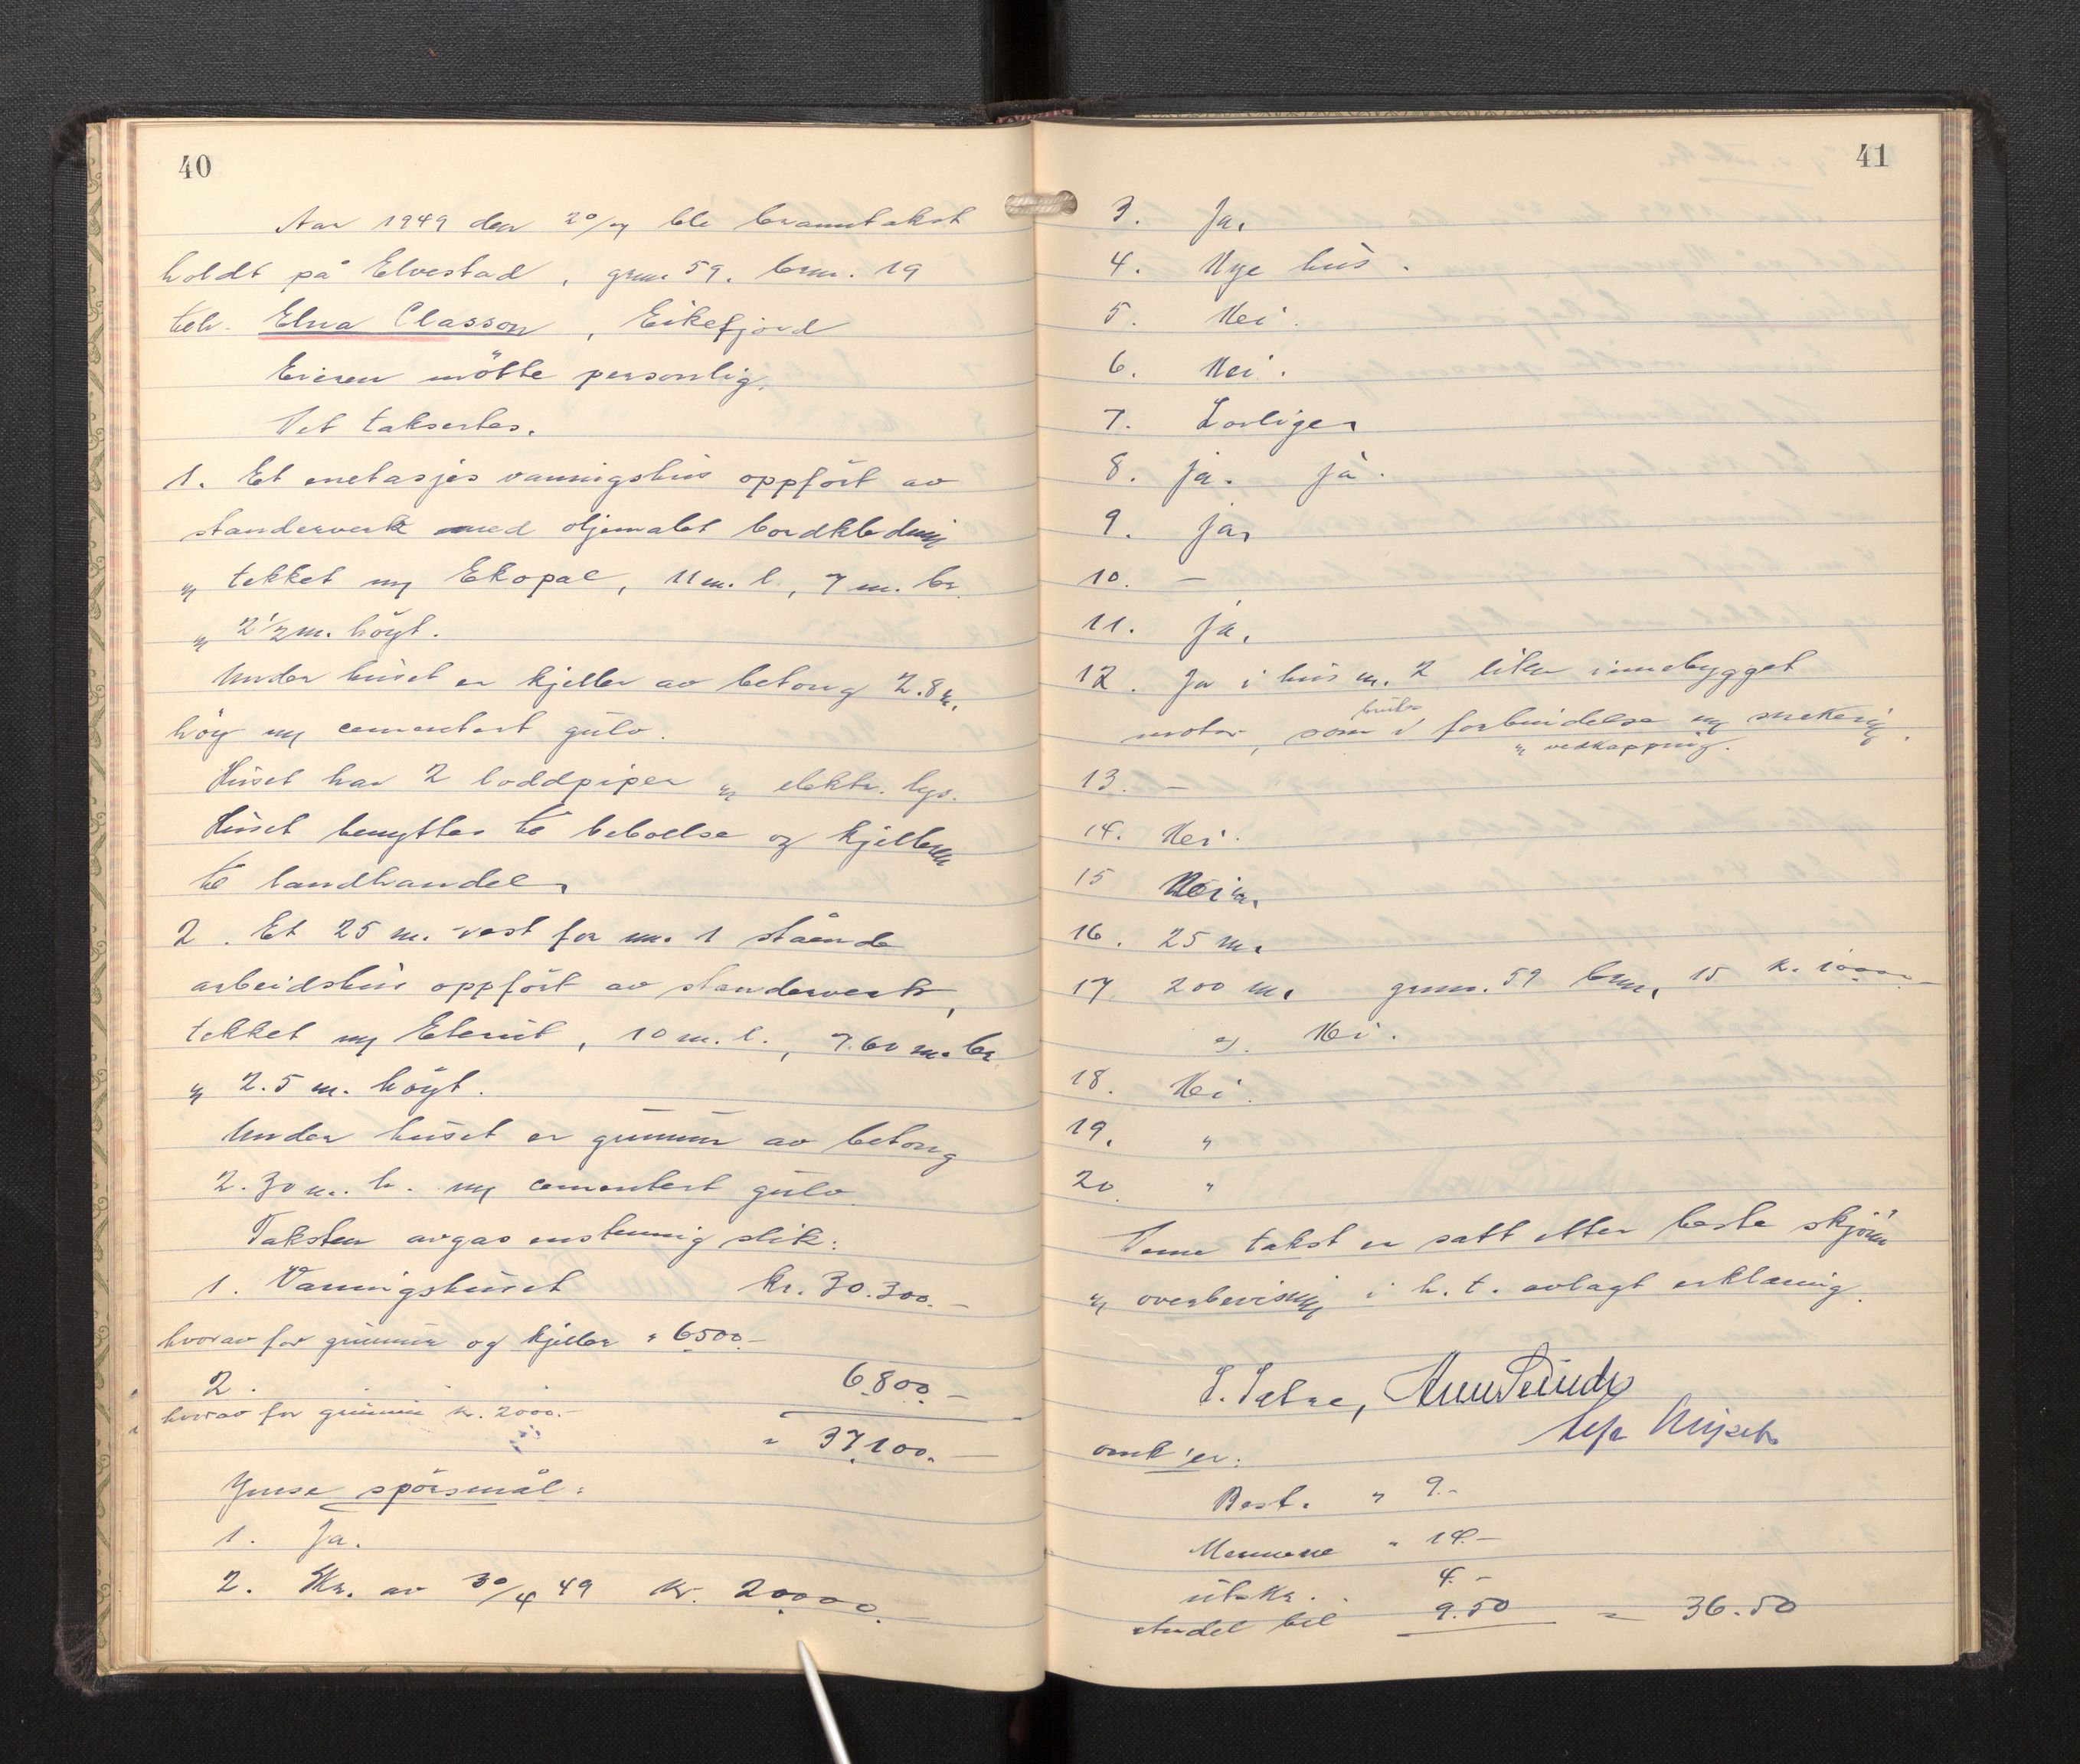 40
Aar 1949 den 20/9 ble branntakst
holdt på Elvestad, gnr. 59. bnr. 19
teh. Elna Classon, Eikefjord
Eieren mötte personlig.
Det taksertes.
1. Et enetasjes vanningshus oppfört av
standerverk med oljemalet bordkledning
og tekket m/ Ekopal, 11 m. l., 7 m. br.
og 2 1/2 m. höyt.
Under huset er kjeller av betong 2.8 m.
höy m/ cementert gulv.
Huset har 2 loddpiper og elektr. lys.
Huset benyttes til beboelse og kjelleren
til landhandel.
2. Et 25 m. vest for nr. 1 stående
arbeidshus oppfört av standerverk,
tekket m/ Eternit, 10 m. l., 7.60 m. br
og 2.5 m. höyt.
Under huset er grunnur av betong
2.30 m. h. m/ cementert gulv.
Taksten avgas enstemmig slik:
1. Vanningshuset kr. 30.300.-
hvorav for grunnur og kjeller " 6500.-
2. 6.800.-
hvorav for grunnur kr. 2000.-
" 37.100.-
Ymse spörsmål:
1. Ja.
2. Kr. av 30/4 49 kr. 20000.-
41
3. Ja.
4. Nye hus.
5. Nei.
6. Nei.
7. Lovliger
8. ja. ja.
9. ja,
10. -
11. ja.
12. Ja i hus nr. 2 liten innebygget
motor, som brukes i forbindelse m/ snekring
og vedkapping.
13. -
14. Nei.
15 Nei
16. 25 m.
17 200 m. gnr. 59 bnr. 15 k. 10000.-
a). Nei.
18. Nei.
19. "
20. "
Denne takst er satt etter beste skjönn
og overbevisning i h. t. avlagt erklæring.
omk'er:
Best. " 9.-
Mennene " 14.-
utskr. 4.-
Andel bil 9.50 = 36.50